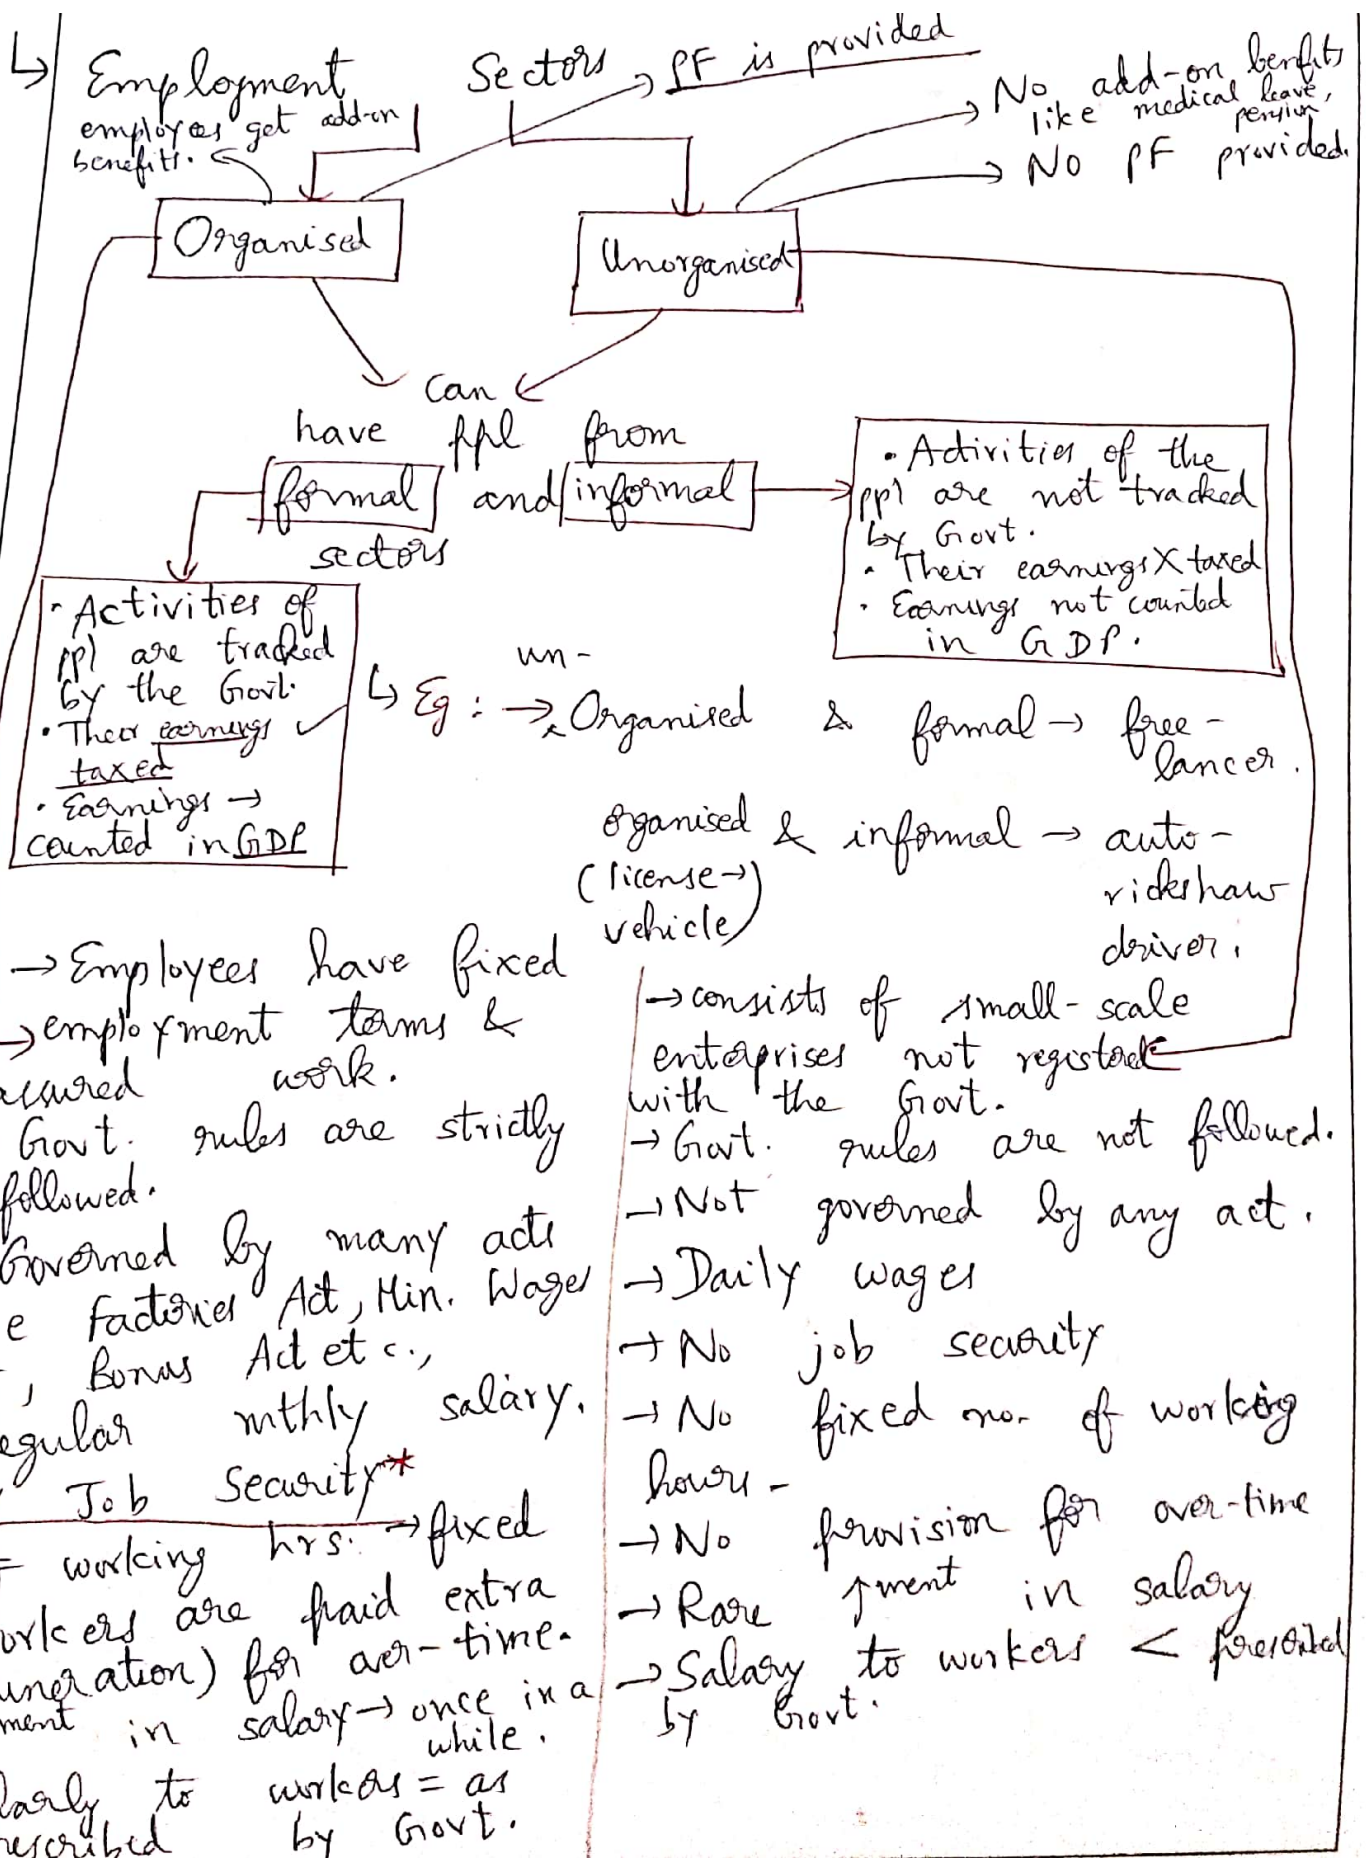 ↳ Employment Sectors
→ PF is provided
employees get add-on
benefits.
→ No add-on benefits
like medical leave,
pension
→ No PF provided.
Organised
Unorganised
can
have ppl from
formal and informal
sectors
• Activities of the
ppl are not tracked
by Govt.
• Their earnings X taxed
• Earnings not counted
in GDP.
• Activities of
ppl are tracked
by the Govt.
• Their earnings ✓
taxed
• Earnings →
counted in GDP
un-
↳ Eg : → Organised & formal → free-
lancer.
organised & informal → auto-
(license → rickshaw
vehicle) driver.
→ Employees have fixed
→ employment terms &
assured work.
Govt. rules are strictly
followed.
Governed by many acts
e Factories Act, Min. Wages
, Bonus Act etc.,
egular mthly salary.
Job Security*
= working hrs. → fixed
orkers are paid extra
uneration) for over-time.
ment in salary → once in a
while.
larly to workers = as
rescribed by Govt.
→ consists of small-scale
enterprises not registered
with the Govt.
→ Govt. rules are not followed.
→ Not governed by any act.
→ Daily wages
→ No job security
→ No fixed no. of working
hours -
→ No provision for over-time
→ Rare ↑ment in salary
→ Salary to workers < prescribed
by Govt.